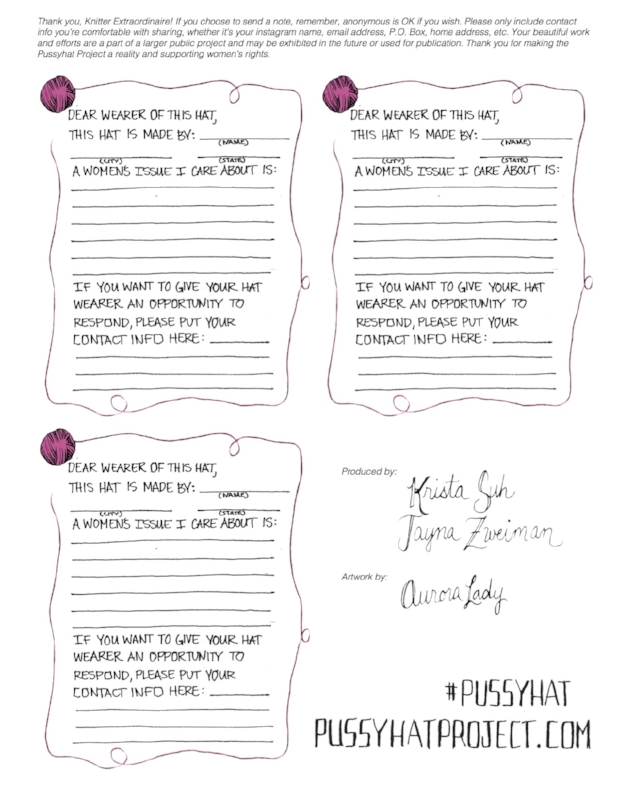 Thank you, Knitter Extraordinaire! If you choose to send a note, remember, anonymous is OK if you wish. Please only include contact
info you're comfortable with sharing, whether it's your instagram name, email address, P.O. Box, home address, etc. Your beautiful work
and efforts are a part of a larger public project and may be exhibited in the future or used for publication. Thank you for making the
Pussyhat Project a reality and supporting women's rights.
DEAR WEARER OF THIS HAT,
THIS HAT IS MADE BY:
(NAME)
(CITY) (STATE)
A WOMENS ISSUE I CARE ABOUT IS:
IF YOU WANT TO GIVE YOUR HAT
WEARER AN OPPORTUNITY TO
RESPOND, PLEASE PUT YOUR
CONTACT INFO HERE:
DEAR WEARER OF THIS HAT,
THIS HAT IS MADE BY:
(NAME)
(CITY) (STATE)
A WOMENS ISSUE I CARE ABOUT IS:
IF YOU WANT TO GIVE YOUR HAT
WEARER AN OPPORTUNITY TO
RESPOND, PLEASE PUT YOUR
CONTACT INFO HERE:
DEAR WEARER OF THIS HAT,
THIS HAT IS MADE BY:
(NAME)
(CITY) (STATE)
A WOMENS ISSUE I CARE ABOUT IS:
IF YOU WANT TO GIVE YOUR HAT
WEARER AN OPPORTUNITY TO
RESPOND, PLEASE PUT YOUR
CONTACT INFO HERE:
Produced by:
Krista Suh
Jayna Zweiman
Artwork by:
Aurora Lady
#PUSSYHAT
PUSSYHATPROJECT.COM